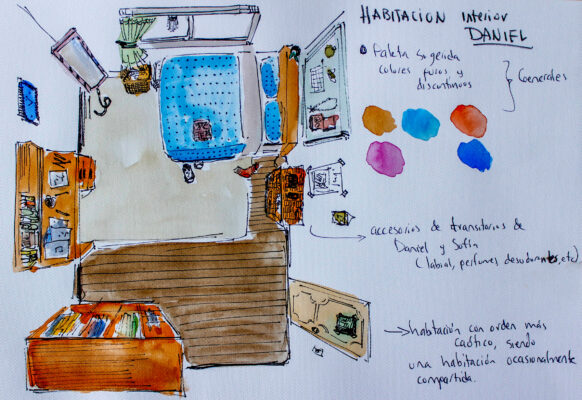 HABITACION interior
DANIEL
Paleta sugerida
colores puros y
discontinuos
Generales
accesorios de transitorios de
Daniel y Sofía
(labial, perfumes desodorantes, etc)
habitación con orden más
caótico, siendo
una habitación ocasionalmente
compartida.